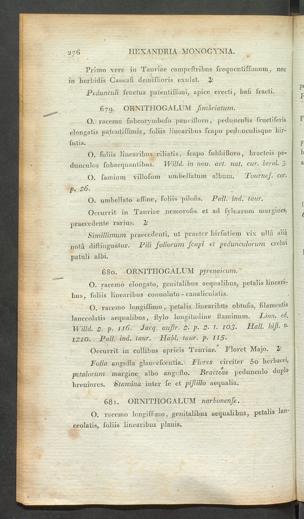 276 HEXANDRIA MONOGYNIA.
Primo vere in Tauriae campestribus frequentissimum, nec
in herbidis Caucasi demissioris exulat. ♃
Pedunculi fructus patentissimi, apice erecti, basi fracti.
679. ORNITHOGALUM fimbriatum.
O. racemo subcorymboso paucifloro, pedunculis fructiferis
elongatis patentissimis, foliis linearibus scapo pedunculisque hir-
sutis.
O. foliis linearibus ciliatis, scapo subdifloro, bracteis pe-
dunculos subaequantibus. Willd. in nov. act. nat. cur. berol. 3
O. famium villosum umbellatum album. Tournef. cor.
p. 26.
O. umbellato affine, foliis pilosis. Pall. ind. taur.
Occurrit in Tauriae nemorosis et ad sylvarum margines,
praecedente rarius. ♃
Simillimum praecedenti, ut praeter hirsutiem vix ulla alia
nota distinguatur. Pili foliorum scapi et pedunculorum crebri
patuli albi.
680. ORNITHOGALUM pyrenaicum.
O. racemo elongato, genitalibus aequalibus, petalis lineari-
bus, foliis linearibus convoluto-canaliculatis.
O. racemo longissimo, petalis linearibus obtusis, filamentis
lanceolatis aequalibus, stylo longitudine staminum. Linn. ed.
Willd. 2. p. 116. Jacq. austr. 2. p. 2. t. 103. Hall. hist. n.
1210. Pall. ind. taur. Habl. taur. p. 115.
Occurrit in collibus apricis Tauriae. Floret Majo. ♃
Folia angusta glaucescentia. Flores circiter 50 herbacei,
petalorum margine albo angusto. Bracteae pedunculo duplo
breviores. Stamina inter se et pistillo aequalia.
681. ORNITHOGALUM narbonense.
O. racemo longissimo, genitalibus aequalibus, petalis lan-
ceolatis, foliis linearibus planis.